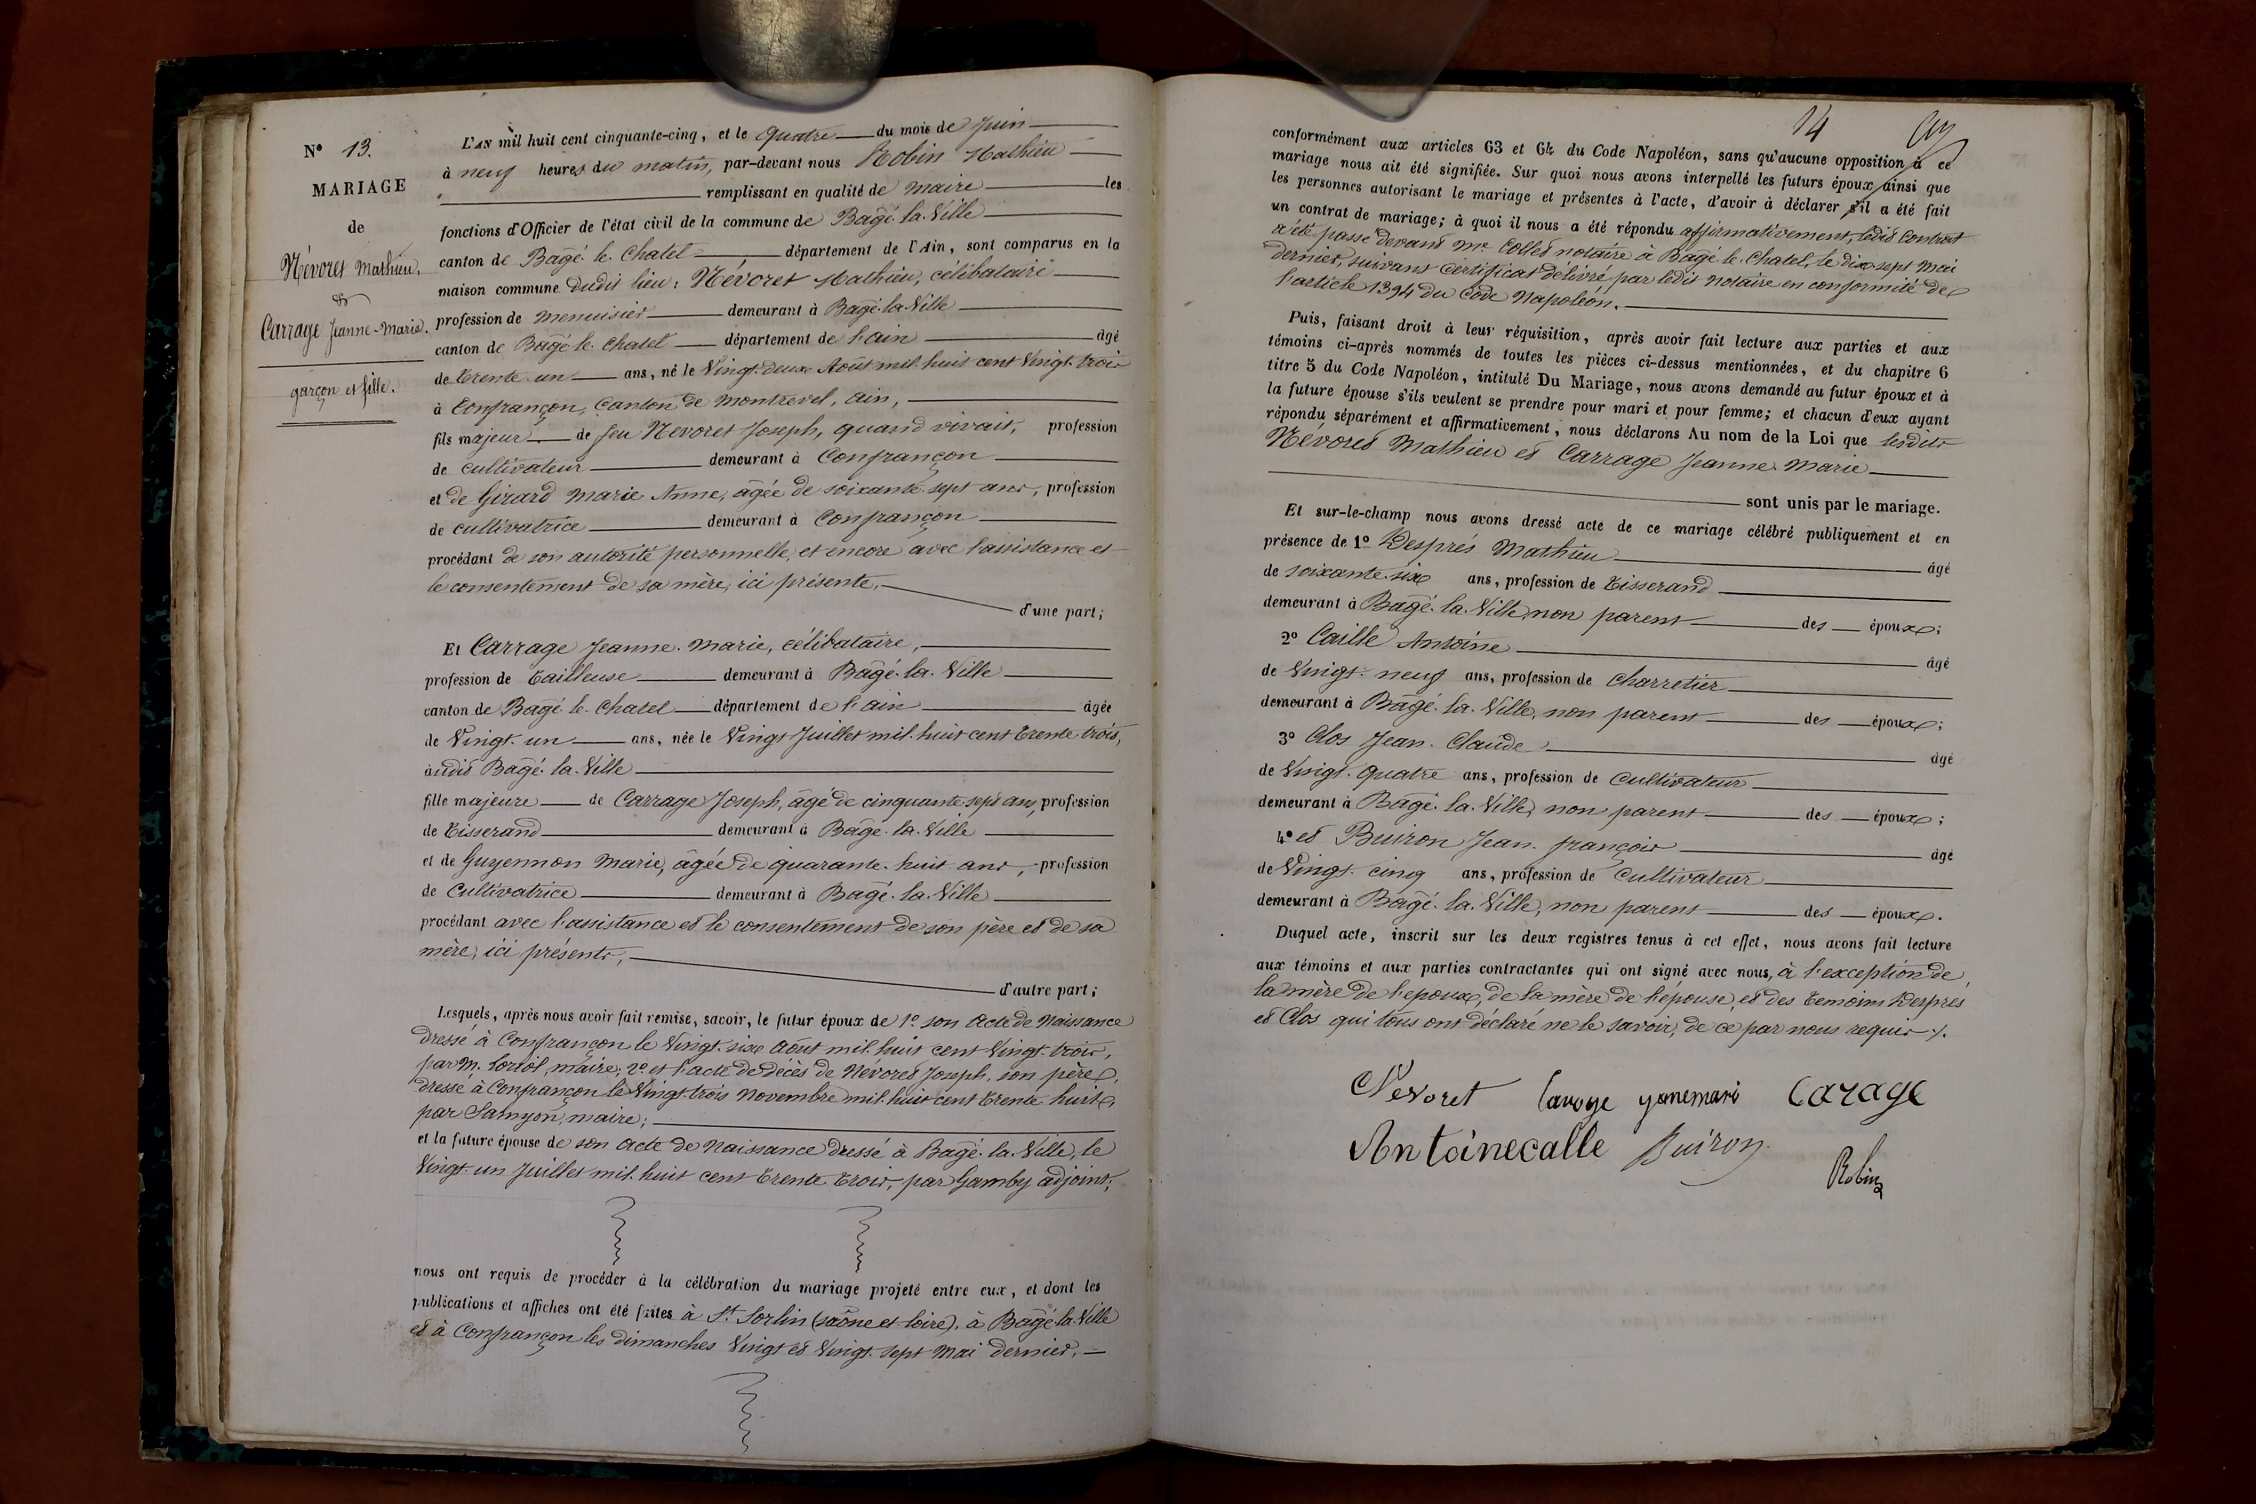 N° 13.
MARIAGE
de
Névoret Mathieu,
&
Carrage Jeanne-Marie.
garçon et fille.
L'AN mil huit cent cinquante-cinq, et le quatre du mois de Juin
à neuf heures du matin, par-devant nous Robin Mathieu
remplissant en qualité de maire les
fonctions d'Officier de l'état civil de la commune de Bâgé-la-Ville
canton de Bâgé-le-Chatel département de l'Ain, sont comparus en la
maison commune dudit lieu : Névoret Mathieu, célibataire
profession de menuisier demeurant à Bâgé-la-Ville
canton de Bâgé-le-Chatel département de l'ain âgé
de trente-un ans, né le Vingt-deux Août mil-huit cent Vingt-trois
à Confrançon, Canton de Montrevel, ain,
fils majeur de feu Névoret Joseph, quand vivait, profession
de cultivateur demeurant à Confrançon
et de Girard Marie Anne, âgée de soixante-sept ans, profession
de cultivatrice demeurant à Confrançon
procédant de son autorité personnelle, et encore avec l'assistance et
le consentement de sa mère, ici présente,
d'une part;
Et Carrage Jeanne-Marie, célibataire,
profession de tailleuse demeurant à Bâgé-la-Ville
canton de Bagé-le-Chatel département de l'ain âgée
de Vingt-un ans, née le Vingt Juillet mil-huit cent trente-trois,
audit Bâgé-la-Ville
fille majeure de Carrage Joseph, âgé de cinquante-sept ans, profession
de tisserand demeurant à Bâgé-la-Ville
et de Guyennon Marie, âgée de quarante-huit ans, profession
de Cultivatrice demeurant à Bâgé-la-Ville
procédant avec l'assistance et le consentement de son père et de sa
mère, ici présents,
d'autre part;
Lesquels, après nous avoir fait remise, savoir, le futur époux de 1° son acte de Naissance
dressé à Confrançon le Vingt-six Août mil-huit cent Vingt-trois,
par M. maire; 2° et l'acte de décès de Névoret Joseph, son père,
dressé à Confrançon le Vingt-trois Novembre mil-huit cent trente-huit,
par Samyon, maire;
et la future épouse de son acte de Naissance dressé à Bagé-la-Ville, le
Vingt-un Juillet mil-huit cent trente-trois, par Gamby adjoint,
nous ont requis de procéder à la célébration du mariage projeté entre eux, et dont les
publications et affiches ont été faites à St Sorlin (saône et loire), à Bâgé-la-Ville
et à Confrançon les dimanches Vingt et Vingt-sept Mai dernier,
14
conformément aux articles 63 et 64 du Code Napoléon, sans qu'aucune opposition à ce
mariage nous ait été signifiée. Sur quoi nous avons interpellé les futurs époux ainsi que
les personnes autorisant le mariage et présentes à l'acte, d'avoir à déclarer s'il a été fait
un contrat de mariage; à quoi il nous a été répondu affirmativement, ledit Contrat
a été passé devant Me Collet notaire à Bagé-le-Chatel, le dix-sept Mai
dernier, suivant Certificat délivré par ledit notaire en conformité de
l'article 1394 du Code Napoléon.
Puis, faisant droit à leur réquisition, après avoir fait lecture aux parties et aux
témoins ci-après nommés de toutes les pièces ci-dessus mentionnées, et du chapitre 6
titre 5 du Code Napoléon, intitulé Du Mariage, nous avons demandé au futur époux et à
la future épouse s'ils veulent se prendre pour mari et pour femme; et chacun d'eux ayant
répondu séparément et affirmativement, nous déclarons Au nom de la Loi que lesdits
Névoret Mathieu et Carrage Jeanne-Marie
sont unis par le mariage.
Et sur-le-champ nous avons dressé acte de ce mariage célébré publiquement et en
présence de 1° Després Mathieu âgé
de soixante-six ans, profession de tisserand
demeurant à Bagé-la-Ville, non parent des époux;
2° Caille Antoine âgé
de Vingt-neuf ans, profession de charretier
demeurant à Bâgé-la-Ville, non parent des époux;
3° Clos Jean-Claude âgé
de Vingt-quatre ans, profession de cultivateur
demeurant à Bâgé-la-Ville, non parent des époux;
4° et Buiron Jean-françois âgé
de Vingt-cinq ans, profession de cultivateur
demeurant à Bâgé-la-Ville, non parent des époux.
Duquel acte, inscrit sur les deux registres tenus à cet effet, nous avons fait lecture
aux témoins et aux parties contractantes qui ont signé avec nous, à l'exception de
la mère de l'époux, de la mère de l'épouse, et des témoins Després
et Clos qui tous ont déclaré ne le savoir, de ce par nous requis.
Nevoret Caroge Carage
Antoinecalle Buiron
Robin